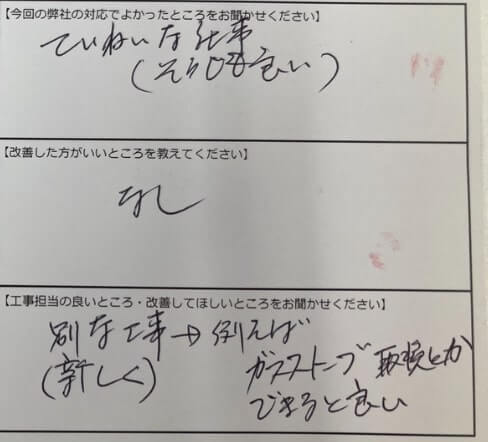 【今回の弊社の対応でよかったところをお聞かせください】
ていねいな仕事
(そうじも良い)
【改善した方がいいところを教えてください】
なし
【工事担当の良いところ・改善してほしいところをお聞かせください】
別な工事→例えば
(新しく) ガスストーブ取換とか
できると良い